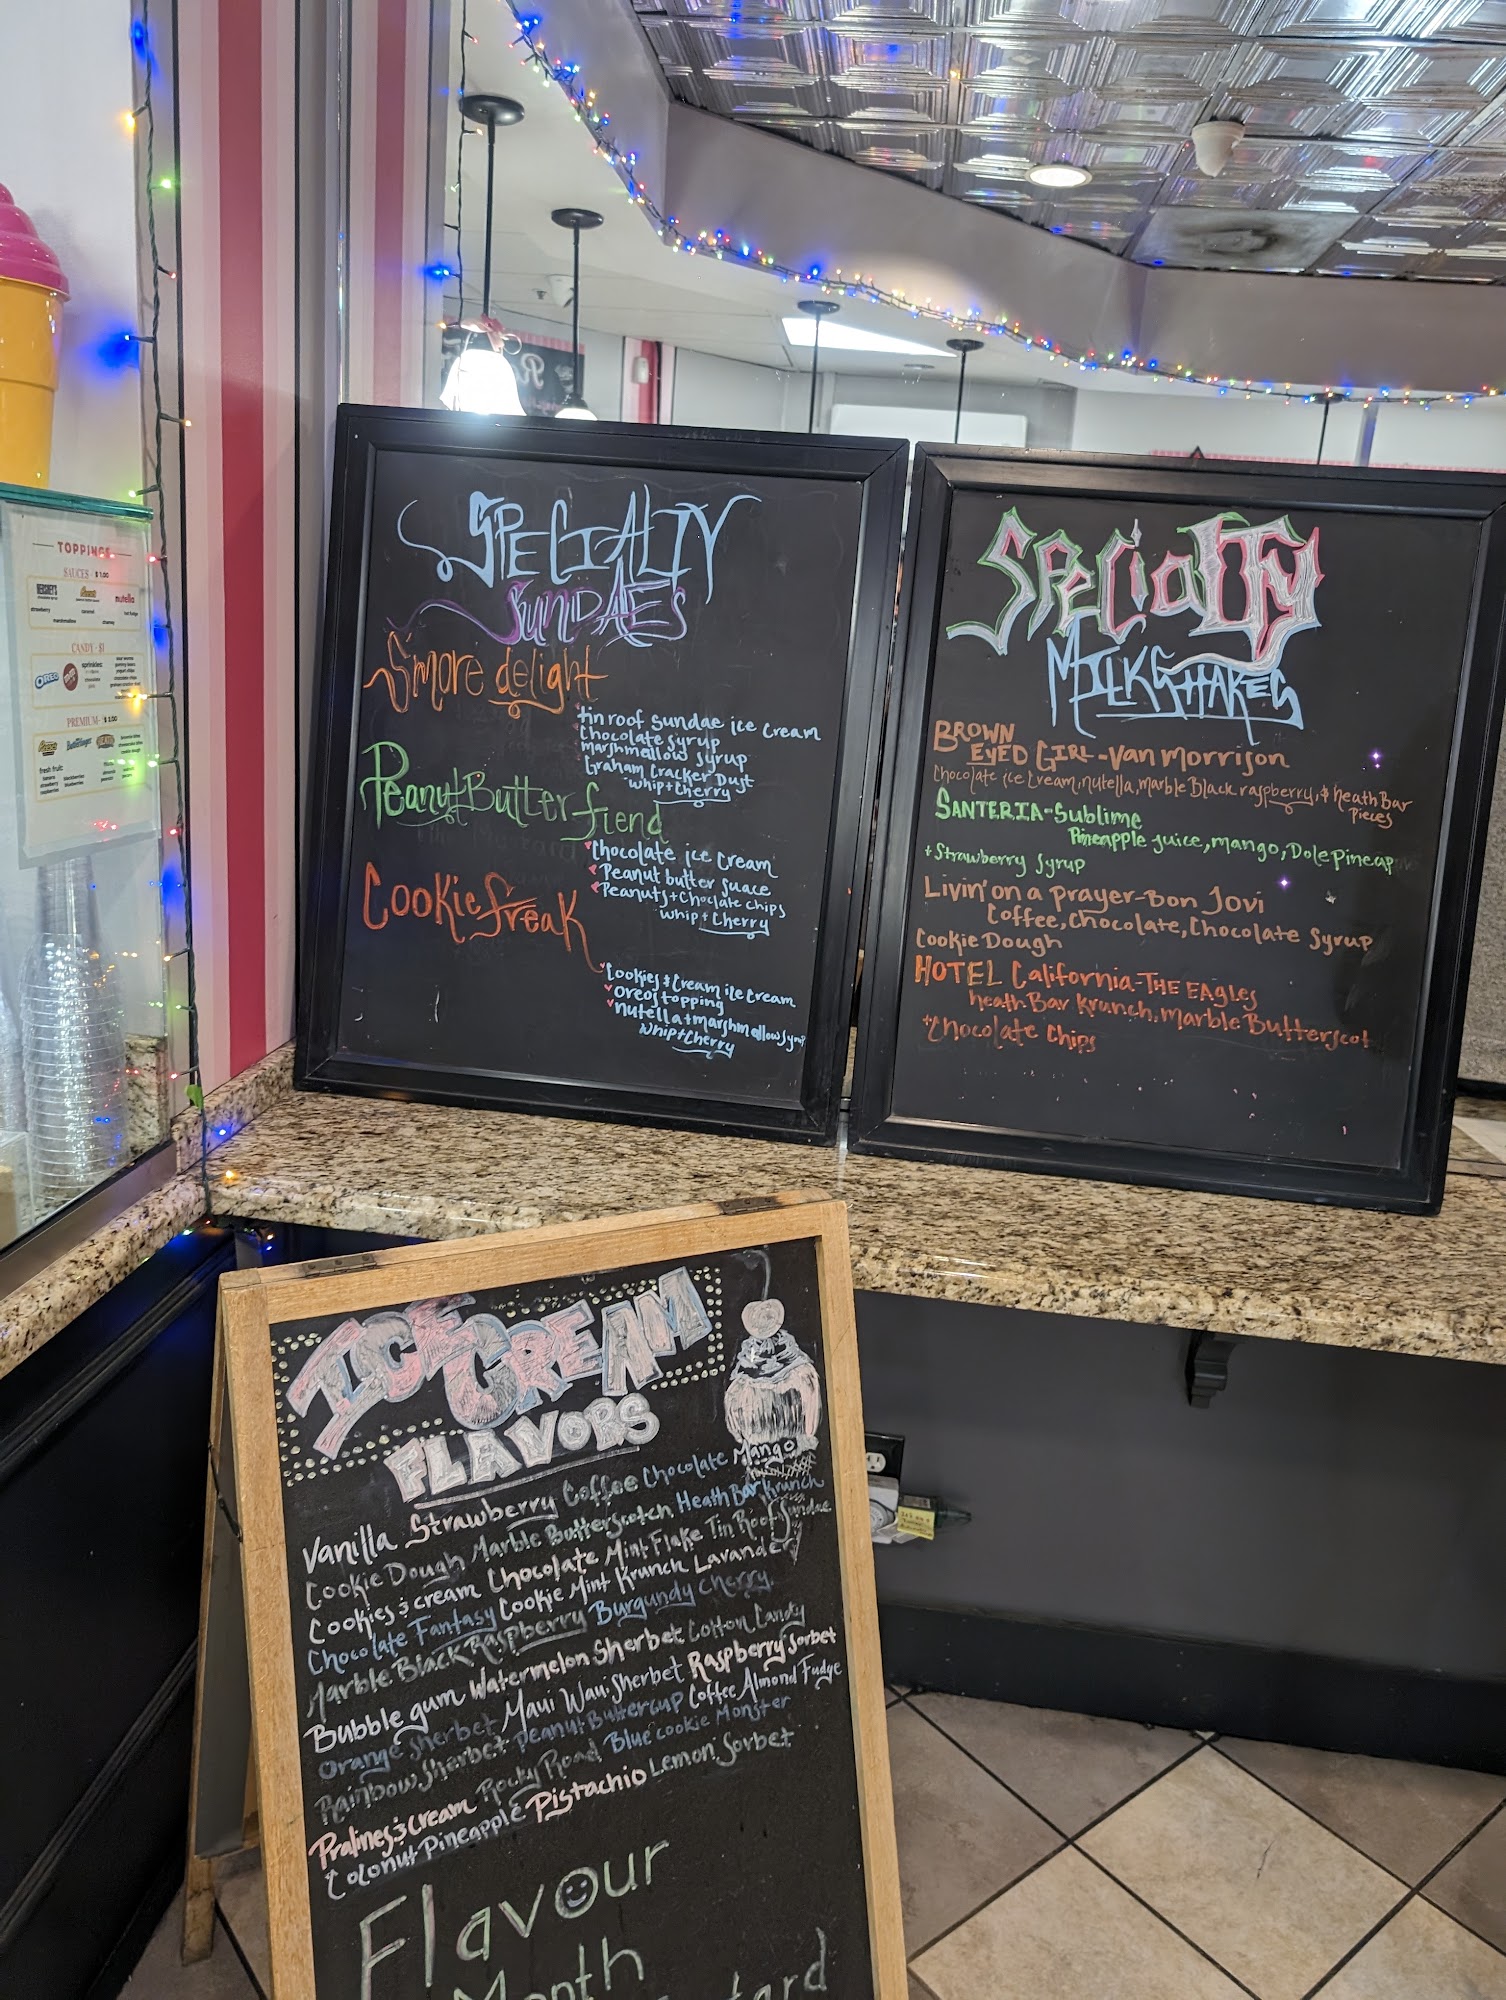 TOPPINGS
SAUCES - $1.00
HERSHEY'S
nutella
strawberry
caramel
hot fudge
marshmallow
CANDY - $1
OREO
sprinkles:
PREMIUM - $2.00
Butterfinger
fresh fruit:
SPECIALTY
SUNDAES
S'more delight
tin roof sundae ice cream
Chocolate syrup
marshmallow syrup
Graham Cracker Dust
whip + Cherry
Peanut Butter fiend
Chocolate ice cream
Peanut butter suace
Peanuts + Choclate chips
whip + Cherry
Cookie freak
Cookies & Cream ice Cream
oreos topping
nutella + marshmallow syrup
whip + Cherry
Specialty
MILKSHAKES
BROWN
EYED GIRL - Van Morrison
Chocolate ice Cream, nutella, marble Black raspberry, & heath Bar
Pieces
SANTERIA - Sublime
Pineapple juice, mango, Dole Pineap
+ Strawberry syrup
Livin' on a prayer - Bon Jovi
Coffee, Chocolate, Chocolate Syrup
Cookie Dough
HOTEL California - THE EAgles
heath Bar Krunch, Marble Butterscot
+ Chocolate Chips
ICE CREAM
FLAVORS
Vanilla Strawberry Coffee Chocolate Mango
Cookie Dough Marble Butterscotch Heath Bar Krunch
Cookies & cream Chocolate Mint Flake Tin Roof Sundae
Chocolate Fantasy Cookie Mint Krunch Lavander
Marble Black Raspberry Burgundy Cherry
Bubble gum Watermelon Sherbet Cotton Candy
Orange Sherbet Maui Waui Sherbet Raspberry Sorbet
Rainbow Sherbet Peanut Buttercup Coffee Almond Fudge
Pralines & cream Rocky Road Blue cookie Monster
Coconut Pineapple Pistachio Lemon Sorbet
Flavour
Month